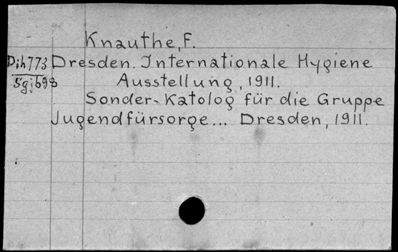 Knauthe, F.
Dih773 Dresden. Internationale Hygiene
5gj698 Ausstellung, 1911.
Sonder-Katolog für die Gruppe
Jugendfürsorge... Dresden, 1911.